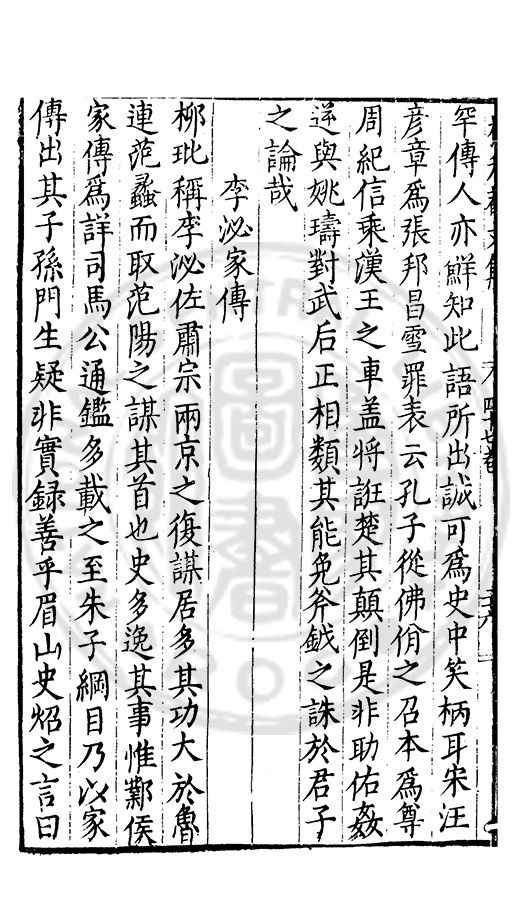 罕傳人亦鮮知此語所出誠可爲史中笑柄耳宋汪
彦章爲張邦昌雪罪表云孔子從佛佾之召本爲尊
周紀信乘漢王之車盖將誑楚其顛倒是非助佑姦
逆與姚璹對武后正相類其能免斧鉞之誅於君子
之論哉
李泌家傳
柳玭稱李泌佐肅宗兩京之復謀居多其功大於魯
連范蠡而取范陽之謀其首也史多逸其事惟鄴侯
家傳爲詳司馬公通鑑多載之至朱子綱目乃以家
傳出其子孫門生疑非實録善乎眉山史炤之言曰